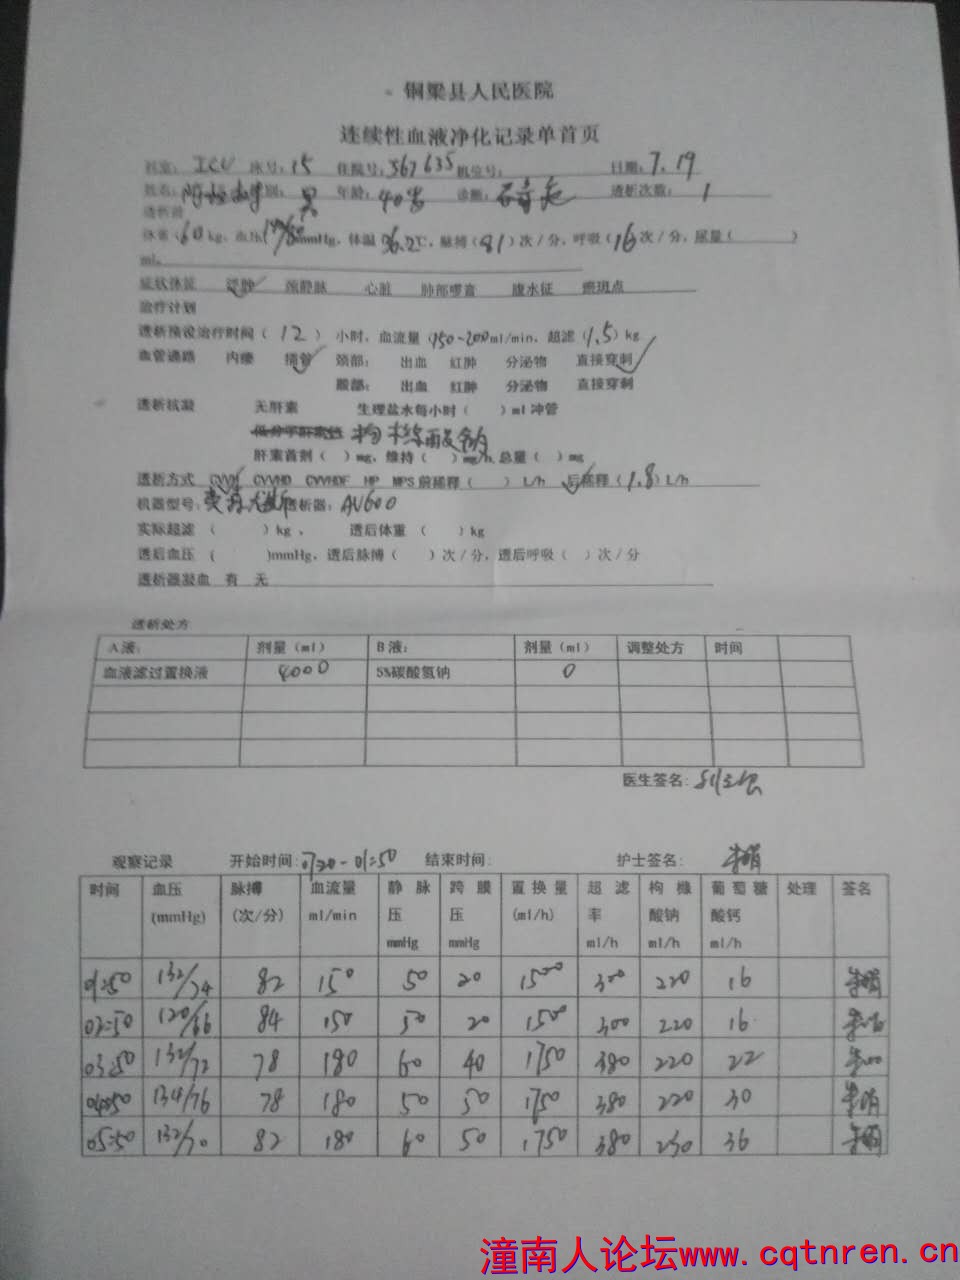 铜梁县人民医院
连续性血液净化记录单首页
科室: ICU 床号: 15 住院号: 367635 机位号: 日期: 7.19
姓名: 性别: 男 年龄: 40岁 诊断: 透析次数: 1
透析前
体重(60kg, 血压 mmHg, 体温36.2℃, 脉搏(81)次/分, 呼吸(16次/分, 尿量( )
ml。
症状体征 浮肿 颈静脉 心脏 肺部啰音 腹水征 瘀斑点
治疗计划
透析预设治疗时间( 12 ) 小时, 血流量(150~200ml/min, 超滤(1.5)kg
血管通路 内瘘 插管 颈部: 出血 红肿 分泌物 直接穿刺
股部: 出血 红肿 分泌物 直接穿刺
透析抗凝 无肝素 生理盐水每小时( )ml冲管
低分子肝素钙 枸橼酸钠
肝素首剂( )mg、维持( )mg/h 总量( )mg
透析方式 CVVH CVVHD CVVHDF HP MPS 前稀释( ) L/h 后稀释(1.8)L/h
机器型号: 透析器: AV600
实际超滤 ( )kg 、 透后体重 ( )kg
透后血压 ( )mmHg、透后脉搏( )次/分, 透后呼吸( )次/分
透析器凝血 有 无
透析处方
A液: 剂量(ml) B液: 剂量(ml) 调整处方 时间
血液滤过置换液 4000 5%碳酸氢钠 0
医生签名:
观察记录 开始时间: 01:50 结束时间: 护士签名:
时间 血压 (mmHg) 脉搏 (次/分) 血流量 ml/min 静脉压 mmHg 跨膜压 mmHg 置换量 (ml/h) 超滤率 ml/h 枸橼酸钠 ml/h 葡萄糖酸钙 ml/h 处理 签名
01:50 132/74 82 150 50 20 1500 300 220 16
02:50 120/66 84 150 50 20 1500 300 220 16
03:50 132/72 78 180 60 40 1750 380 220 22
04:50 134/76 78 180 50 50 1750 380 220 30
05:50 132/70 82 180 60 50 1750 380 230 36
潼南人论坛www.cqtnren.cn